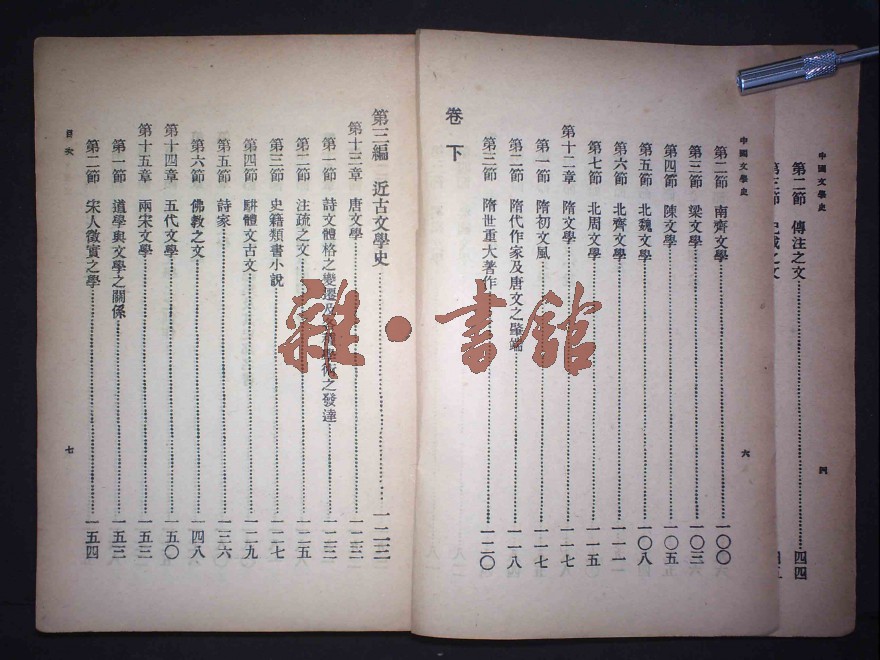 中國文學史 四
第二節 傳注之文 四四
第三節 之文
中國文學史 六
第二節 南齊文學 一〇〇
第三節 梁文學 一〇三
第四節 陳文學 一〇五
第五節 北魏文學 一〇八
第六節 北齊文學 一一一
第七節 北周文學 一一五
第十二章 隋文學 一一七
第一節 隋初文風 一一七
第二節 隋代作家及唐文之肇端 一一八
第三節 隋世重大著作 一二〇
卷下
第三編 近古文學史 一二三
第十三章 唐文學 一二三
第一節 詩文體格之變遷及學術之發達 一二三
第二節 注疏之文 一二五
第三節 史籍類書小說 一二七
第四節 駢體文古文 一二九
第五節 詩家 一三六
第六節 佛教之文 一四八
第十四章 五代文學 一五〇
第十五章 兩宋文學 一五三
第一節 道學與文學之關係 一五三
第二節 宋人徵實之學 一五四
目次 七
雜·書館